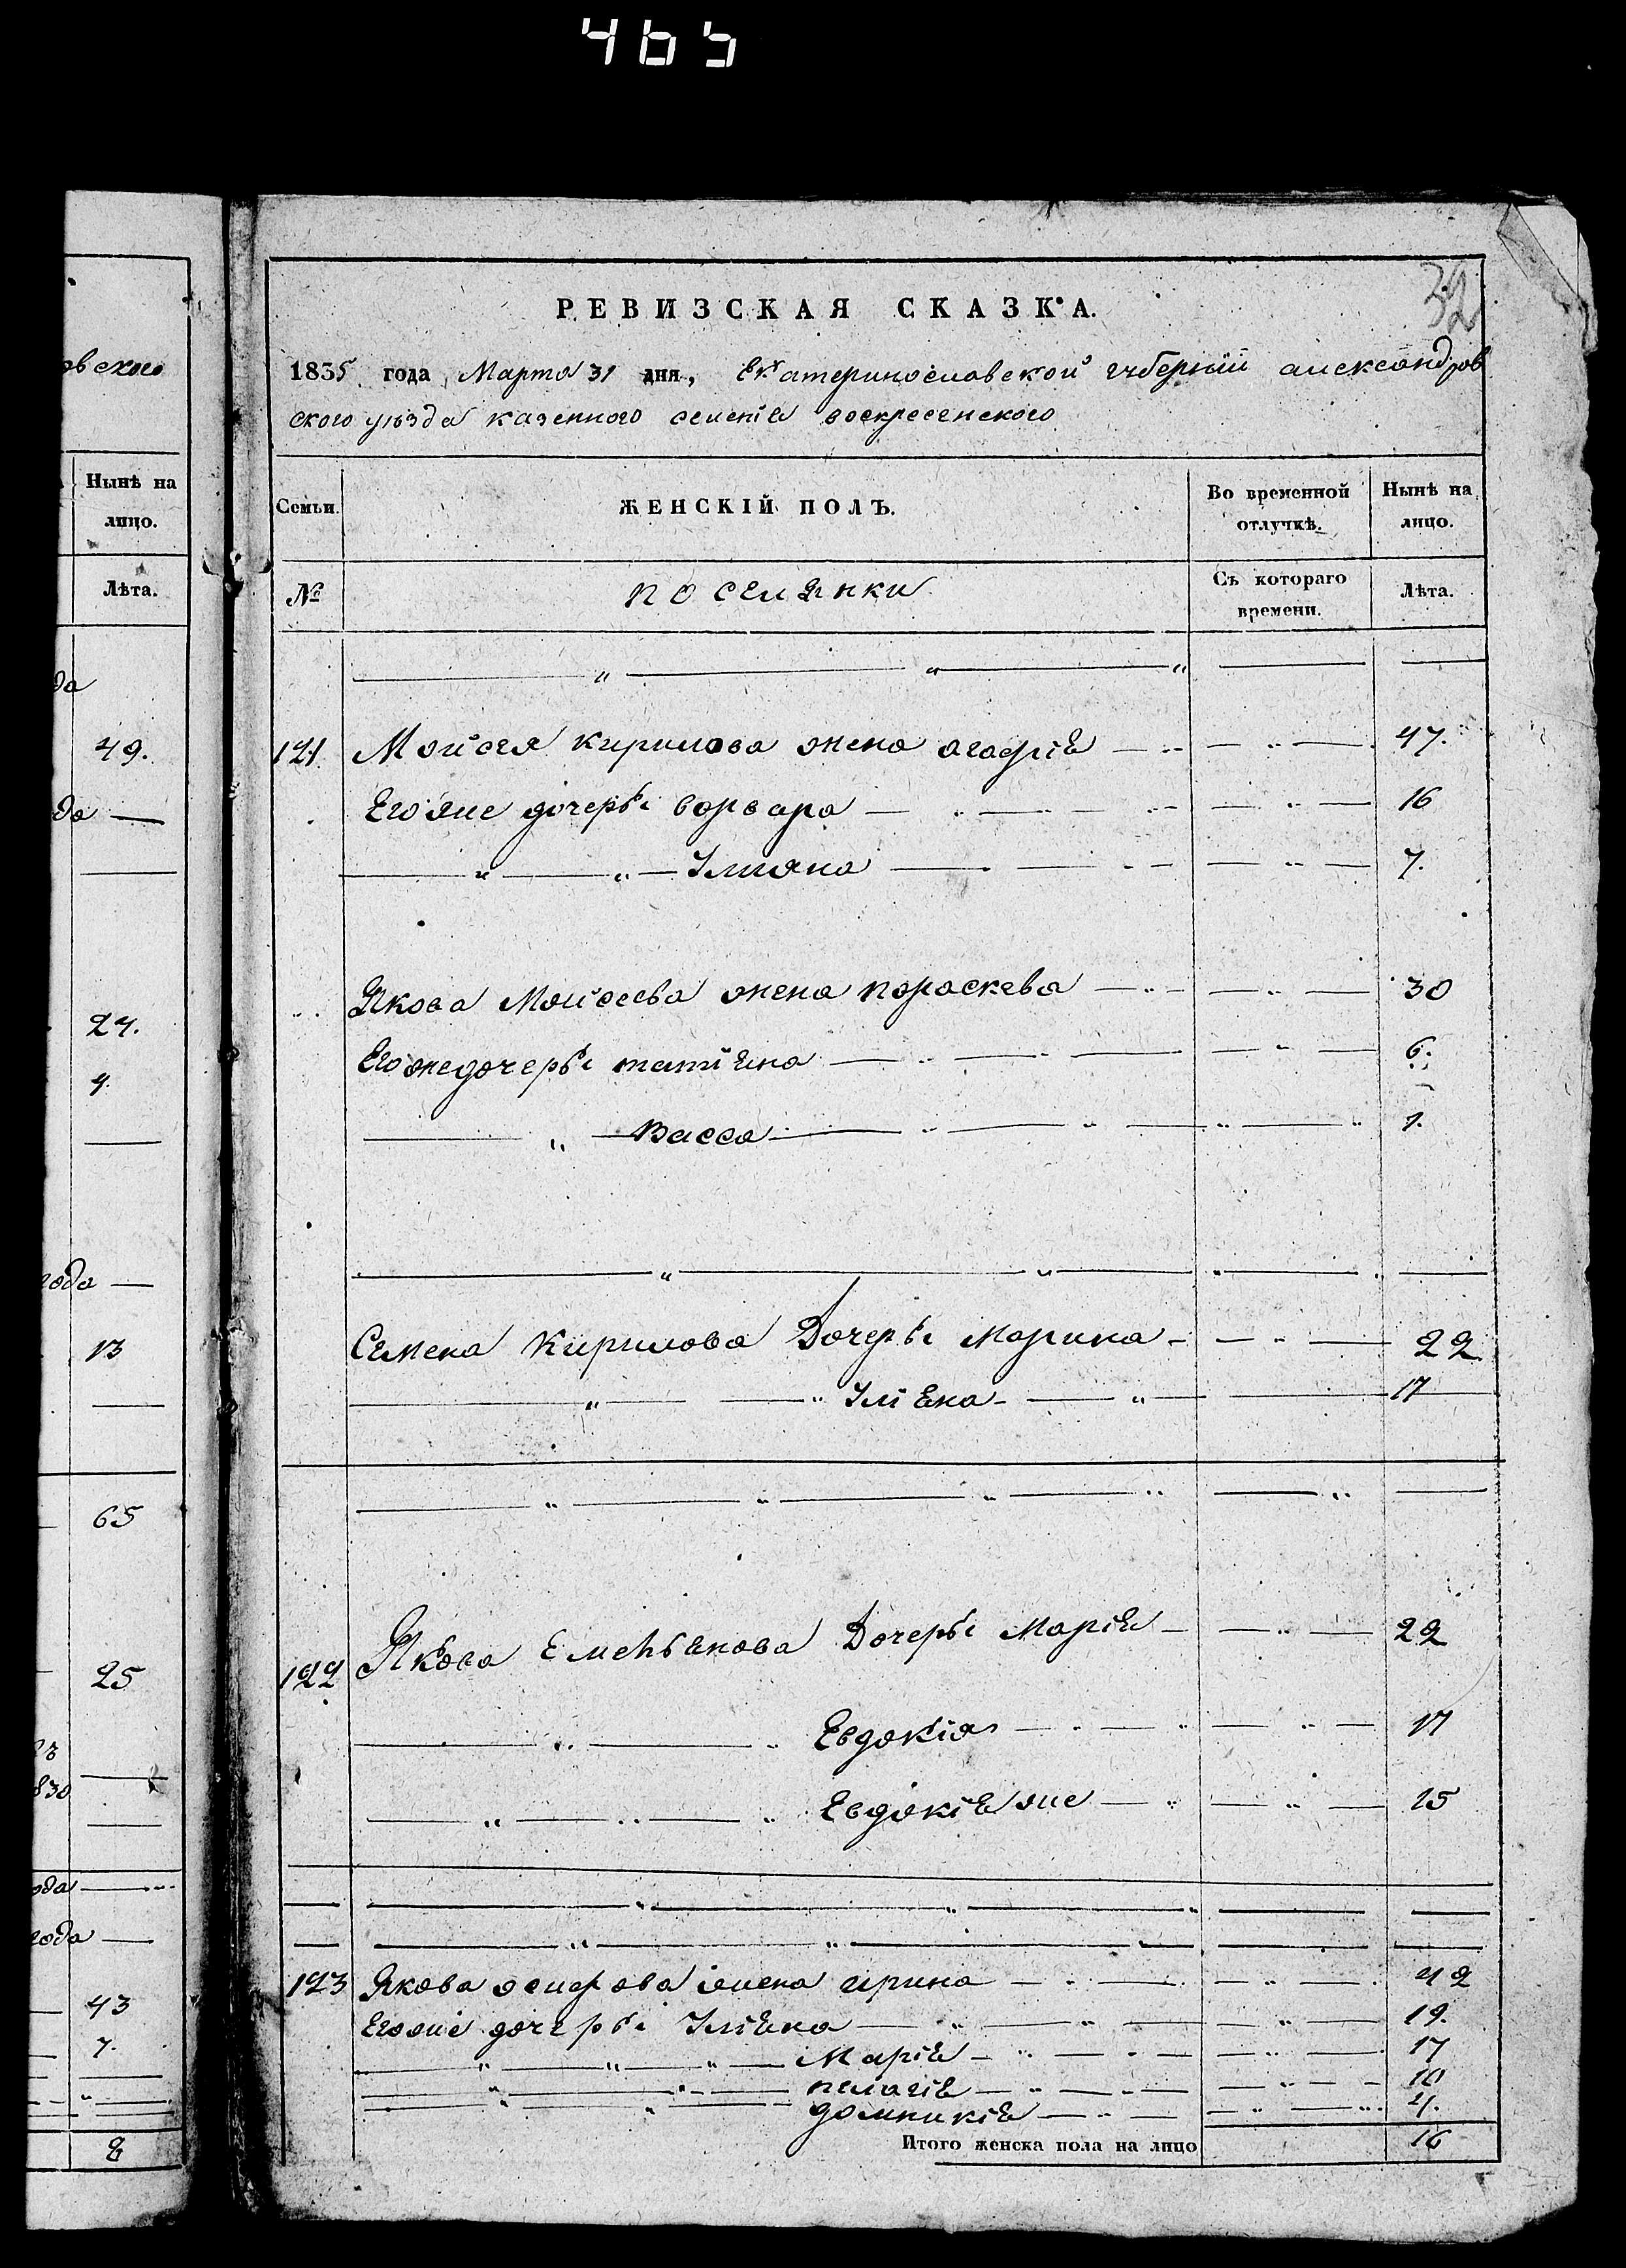 465
32
РЕВИЗСКАЯ СКАЗКА.
1835 года Марта 31 дня, Екатеринославской губернии александров
ского уѣзда казенного селенія воскресенского
овского
Нынѣ на лицо.
Лѣта.
Семьи.
ЖЕНСКІЙ ПОЛЪ.
Во временной отлучкѣ.
Нынѣ на лицо.
№
поселянки
Съ котораго времени.
Лѣта.
да
49.
121 Мойсея Кирилова жена агафія 47.
да
Его же дочери варвара 16
Ульяна 7.
24.
Якова Мойсеева жена параскева 30
4
Его же дочери татіяна 6.
Васса 1.
года
13
Семена Кирилова Дочери Марина 22
Уліяна 17
65
25
122 Якова Емельянова Дочери Марія 22
Евдокія 17
830
Евдокія же 15
ода
года
43
123 Якова осифова жена ирина 42
7.
Его же дочери Уліяна 19.
Марія 17
пелагія 10
домникія 4.
8
Итого женска пола на лицо 16